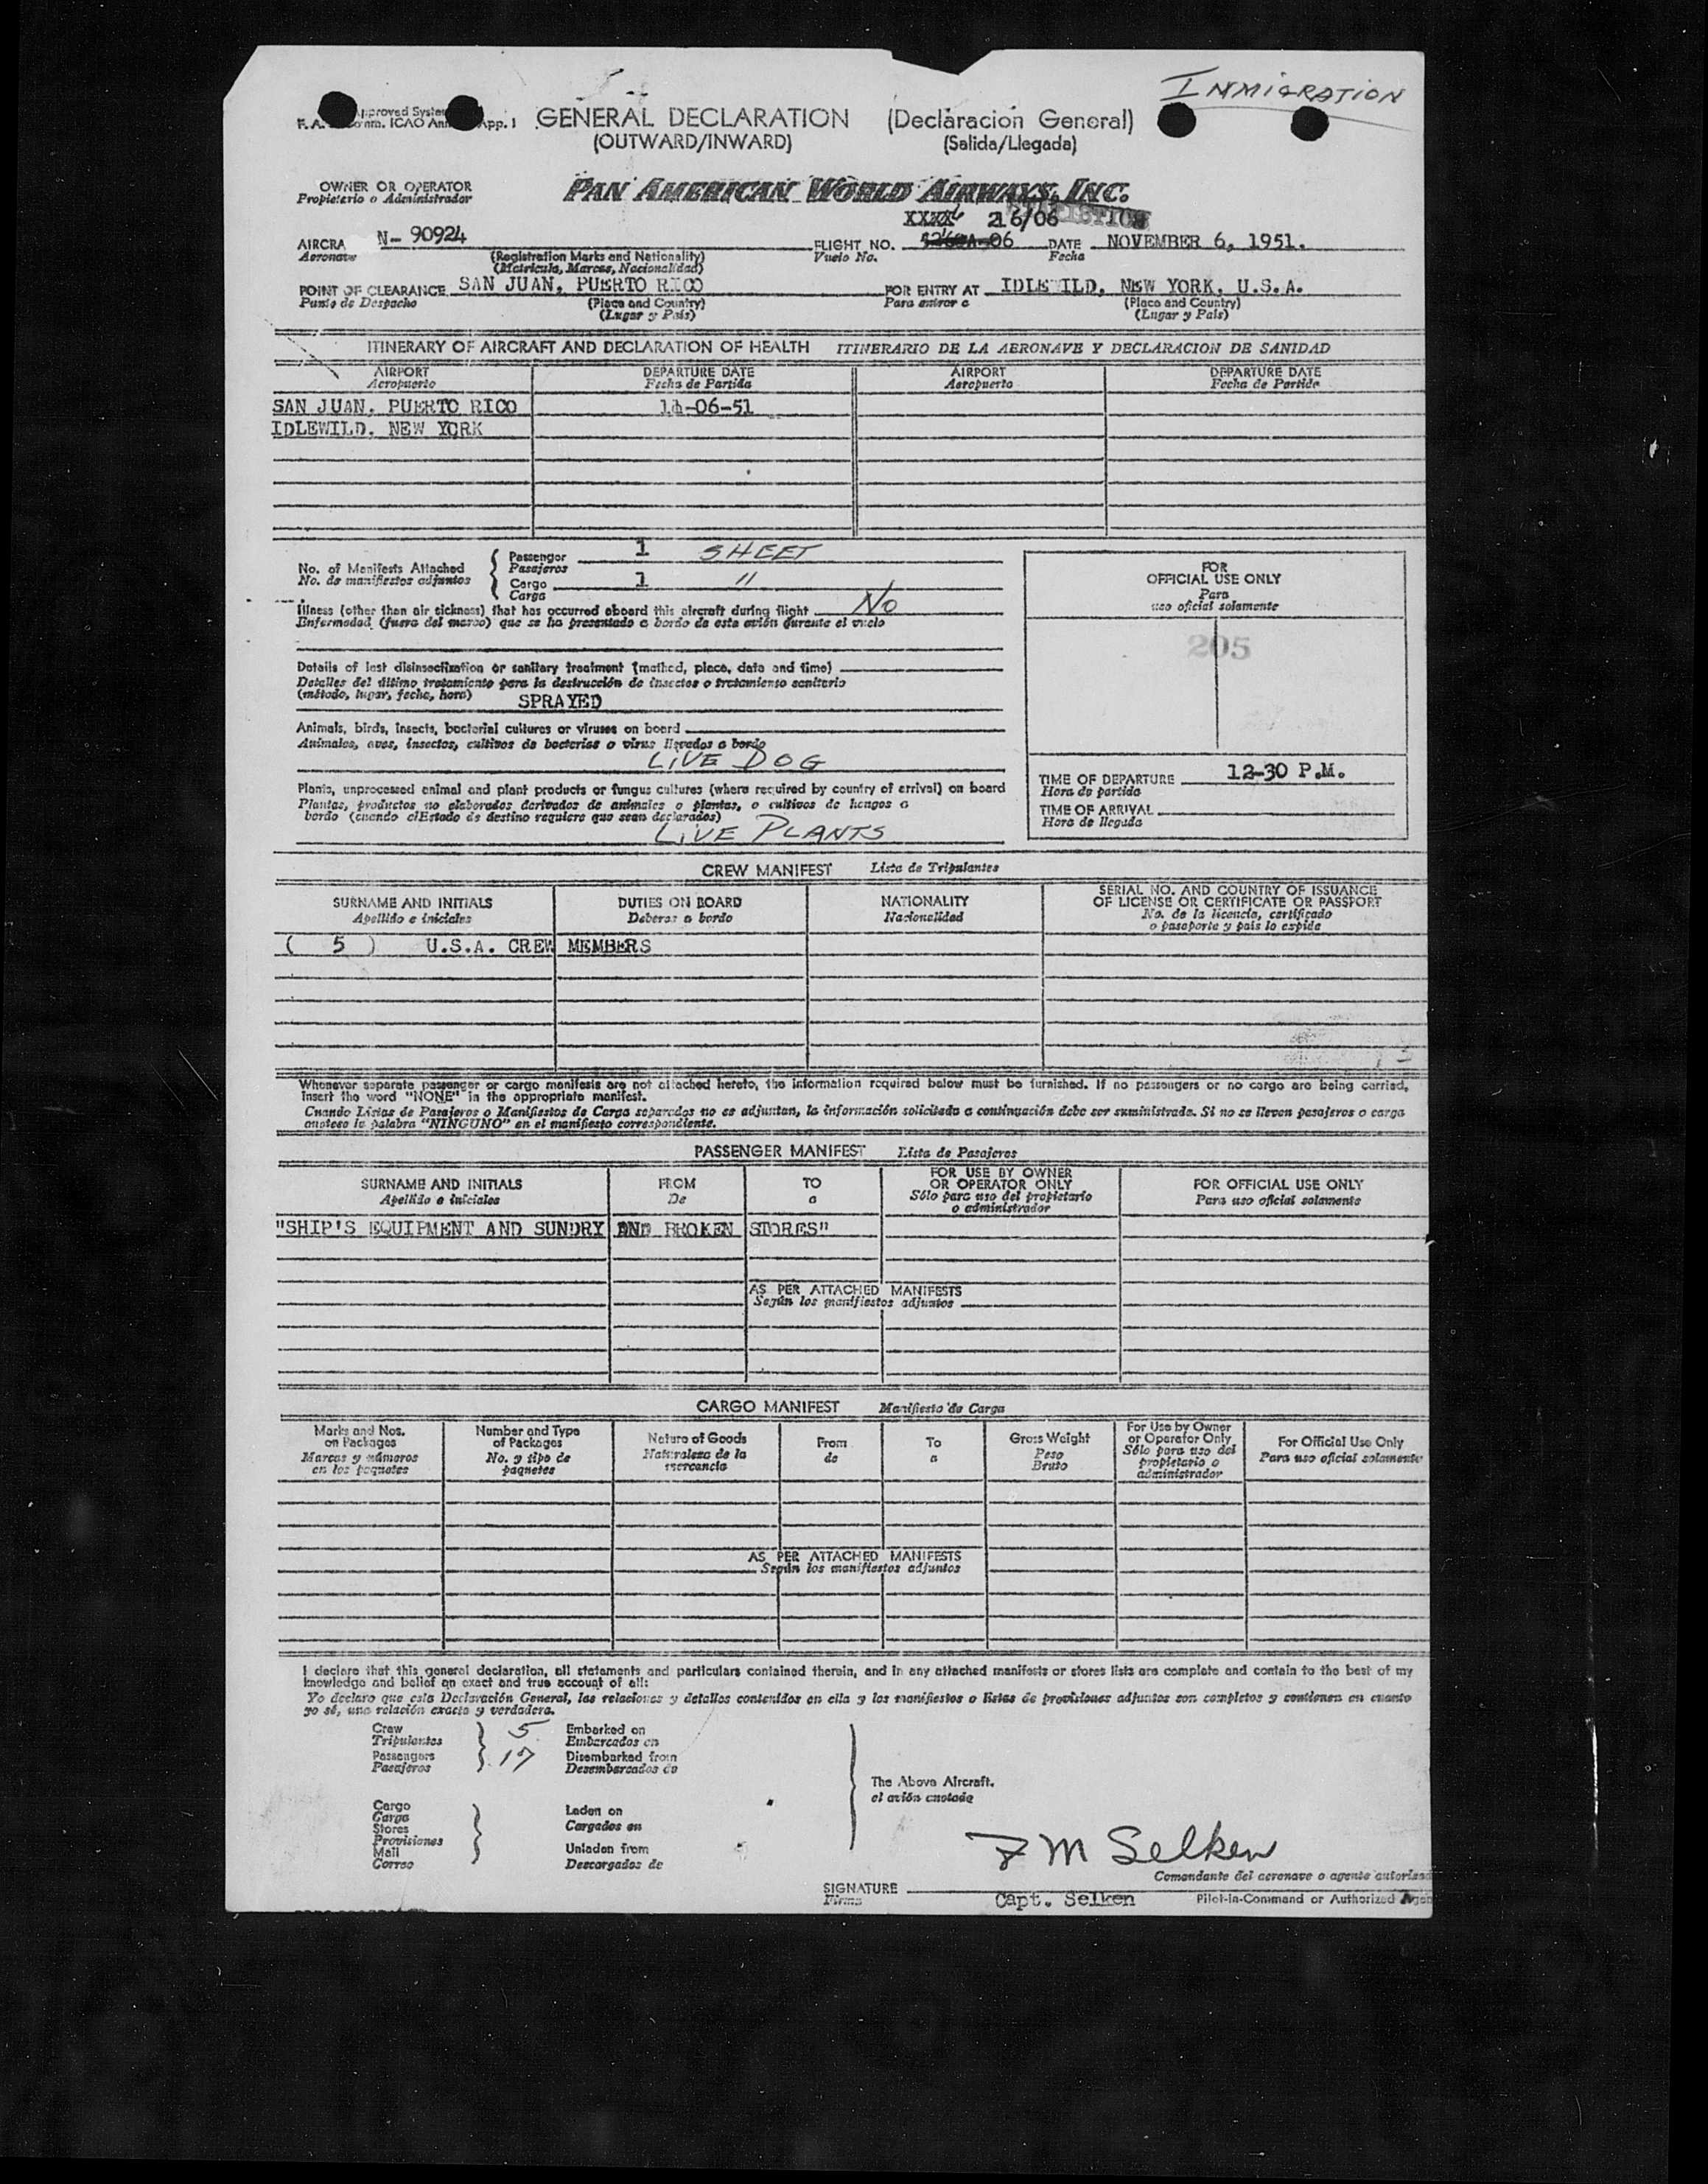 INMIGRATION
GENERAL DECLARATION (Declaracion General)
(OUTWARD/INWARD) (Salida/Llegada)
OWNER OR OPERATOR
Propietario o Administrador
PAN AMERICAN WORLD AIRWAYS, INC.
XXXX 216/06
AIRCRA N- 90924 FLIGHT NO. DATE NOVEMBER 6, 1951.
Aeronave (Registration Marks and Nationality) Vuelo No. Fecha
(Matricula, Marcas, Nacionalidad)
POINT OF CLEARANCE SAN JUAN, PUERTO RICO FOR ENTRY AT IDLEWILD, NEW YORK, U.S.A.
Punto de Despacho (Place and Country) Para entrar a (Place and Country)
(Lugar y País) (Lugar y País)
ITINERARY OF AIRCRAFT AND DECLARATION OF HEALTH ITINERARIO DE LA AERONAVE Y DECLARACION DE SANIDAD
AIRPORT DEPARTURE DATE AIRPORT DEPARTURE DATE
Aeropuerto Fecha de Partida Aeropuerto Fecha de Partida
SAN JUAN, PUERTO RICO 11-06-51
IDLEWILD, NEW YORK
No. of Manifests Attached
No. de manifiestos adjuntos
Passenger 1 SHEET
Pasajeros
Cargo 1 "
Carga
Illness (other than air sickness) that has occurred aboard this aircraft during flight No
Enfermedad (fuera del mareo) que se ha presentado a bordo de este avión durante el vuelo
Details of last disinsectization or sanitary treatment (method, place, date and time)
Detalles del último tratamiento para la destrucción de insectos o tratamiento sanitario
(método, lugar, fecha, hora)
SPRAYED
Animals, birds, insects, bacterial cultures or viruses on board
Animales, aves, insectos, cultivos de bacterias o virus llevados a bordo
LIVE DOG
Plants, unprocessed animal and plant products or fungus cultures (where required by country of arrival) on board
Plantas, productos no elaborados derivados de animales o plantas, o cultivos de hongos a
bordo (cuando el Estado de destino requiera que sean declarados)
LIVE PLANTS
FOR
OFFICIAL USE ONLY
Para
uso oficial solamente
205
TIME OF DEPARTURE 12-30 P.M.
Hora de partida
TIME OF ARRIVAL
Hora de llegada
CREW MANIFEST Lista de Tripulantes
SURNAME AND INITIALS DUTIES ON BOARD NATIONALITY SERIAL NO. AND COUNTRY OF ISSUANCE
OF LICENSE OR CERTIFICATE OR PASSPORT
Apellido e iniciales Deberes a bordo Nacionalidad No. de la licencia, certificado
o pasaporte y país lo expide
( 5 ) U.S.A. CREW MEMBERS
Whenever separate passenger or cargo manifests are not attached hereto, the information required below must be furnished. If no passengers or no cargo are being carried,
insert the word "NONE" in the appropriate manifest.
Cuando Listas de Pasajeros o Manifiestos de Carga separados no se adjuntan, la información solicitada a continuación debe ser suministrada. Si no se lleven pasajeros o carga
anotese la palabra "NINGUNO" en el manifiesto correspondiente.
PASSENGER MANIFEST Lista de Pasajeros
SURNAME AND INITIALS FROM TO FOR USE BY OWNER
OR OPERATOR ONLY FOR OFFICIAL USE ONLY
Apellido e iniciales De a Sólo para uso del propietario
o administrador Para uso oficial solamente
"SHIP'S EQUIPMENT AND SUNDRY AND BROKEN STORES"
AS PER ATTACHED MANIFESTS
Según los manifiestos adjuntos
CARGO MANIFEST Manifiesto de Carga
Marks and Nos.
on Packages
Marcas y números
en los paquetes
Number and Type
of Packages
No. y tipo de
paquetes
Nature of Goods
Naturaleza de la
mercancía
From
de
To
a
Gross Weight
Peso
Bruto
For Use by Owner
or Operator Only
Sólo para uso del
propietario o
administrador
For Official Use Only
Para uso oficial solamente
AS PER ATTACHED MANIFESTS
Según los manifiestos adjuntos
I declare that this general declaration, all statements and particulars contained therein, and in any attached manifests or stores lists are complete and contain to the best of my
knowledge and belief an exact and true account of all:
Yo declaro que esta Declaración General, las relaciones y detalles contenidos en ella y los manifiestos o listas de provisiones adjuntos son completos y contienen en cuanto
yo sé, una relación exacta y verdadera.
Crew 5 Embarked on
Tripulantes Embarcados en
Passengers 17 Disembarked from
Pasajeros Desembarcados de
The Above Aircraft.
el avión anotado
Cargo
Carga
Stores
Provisiones
Mail
Correo
Laden on
Cargados en
Unladen from
Descargados de
F M Selken
Comandante del aeronave o agente autorizad
SIGNATURE
Firma
Capt. Selken Pilot-in-Command or Authorized Agen